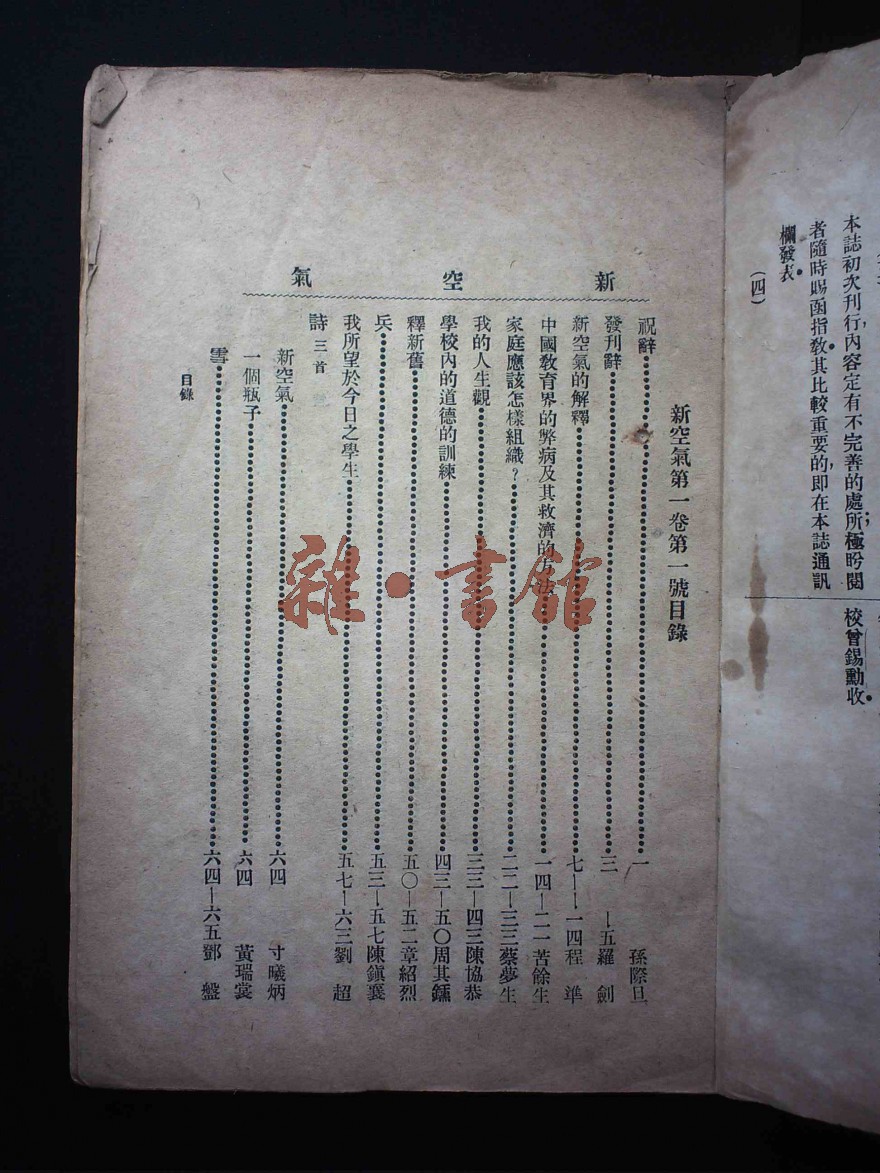 本誌初次刊行,內容定有不完善的處所;極盻閱
者隨時賜函指敎。其比較重要的,即在本誌通訊
欄發表。
(四)
校曾錫勳收。
新空氣
新空氣第一卷第一號目錄
祝辭 一 孫際旦
發刊辭 三—五 羅劍
新空氣的解釋 七—一四 程準
中國敎育界的弊病及其救濟的方法 一四—二二 苦餘生
家庭應該怎樣組織? 二二—三三 蔡夢生
我的人生觀 三三—四三 陳協恭
學校內的道德的訓練 四三—五〇 周其鑂
釋新舊 五〇—五二 章紹烈
兵 五三—五七 陳鎭襄
我所望於今日之學生 五七—六三 劉超
詩三首
新空氣 六四 寸曦炳
一個瓶子 六四 黃瑞裳
雪 六四—六五 鄧盤
目錄
雜·書館